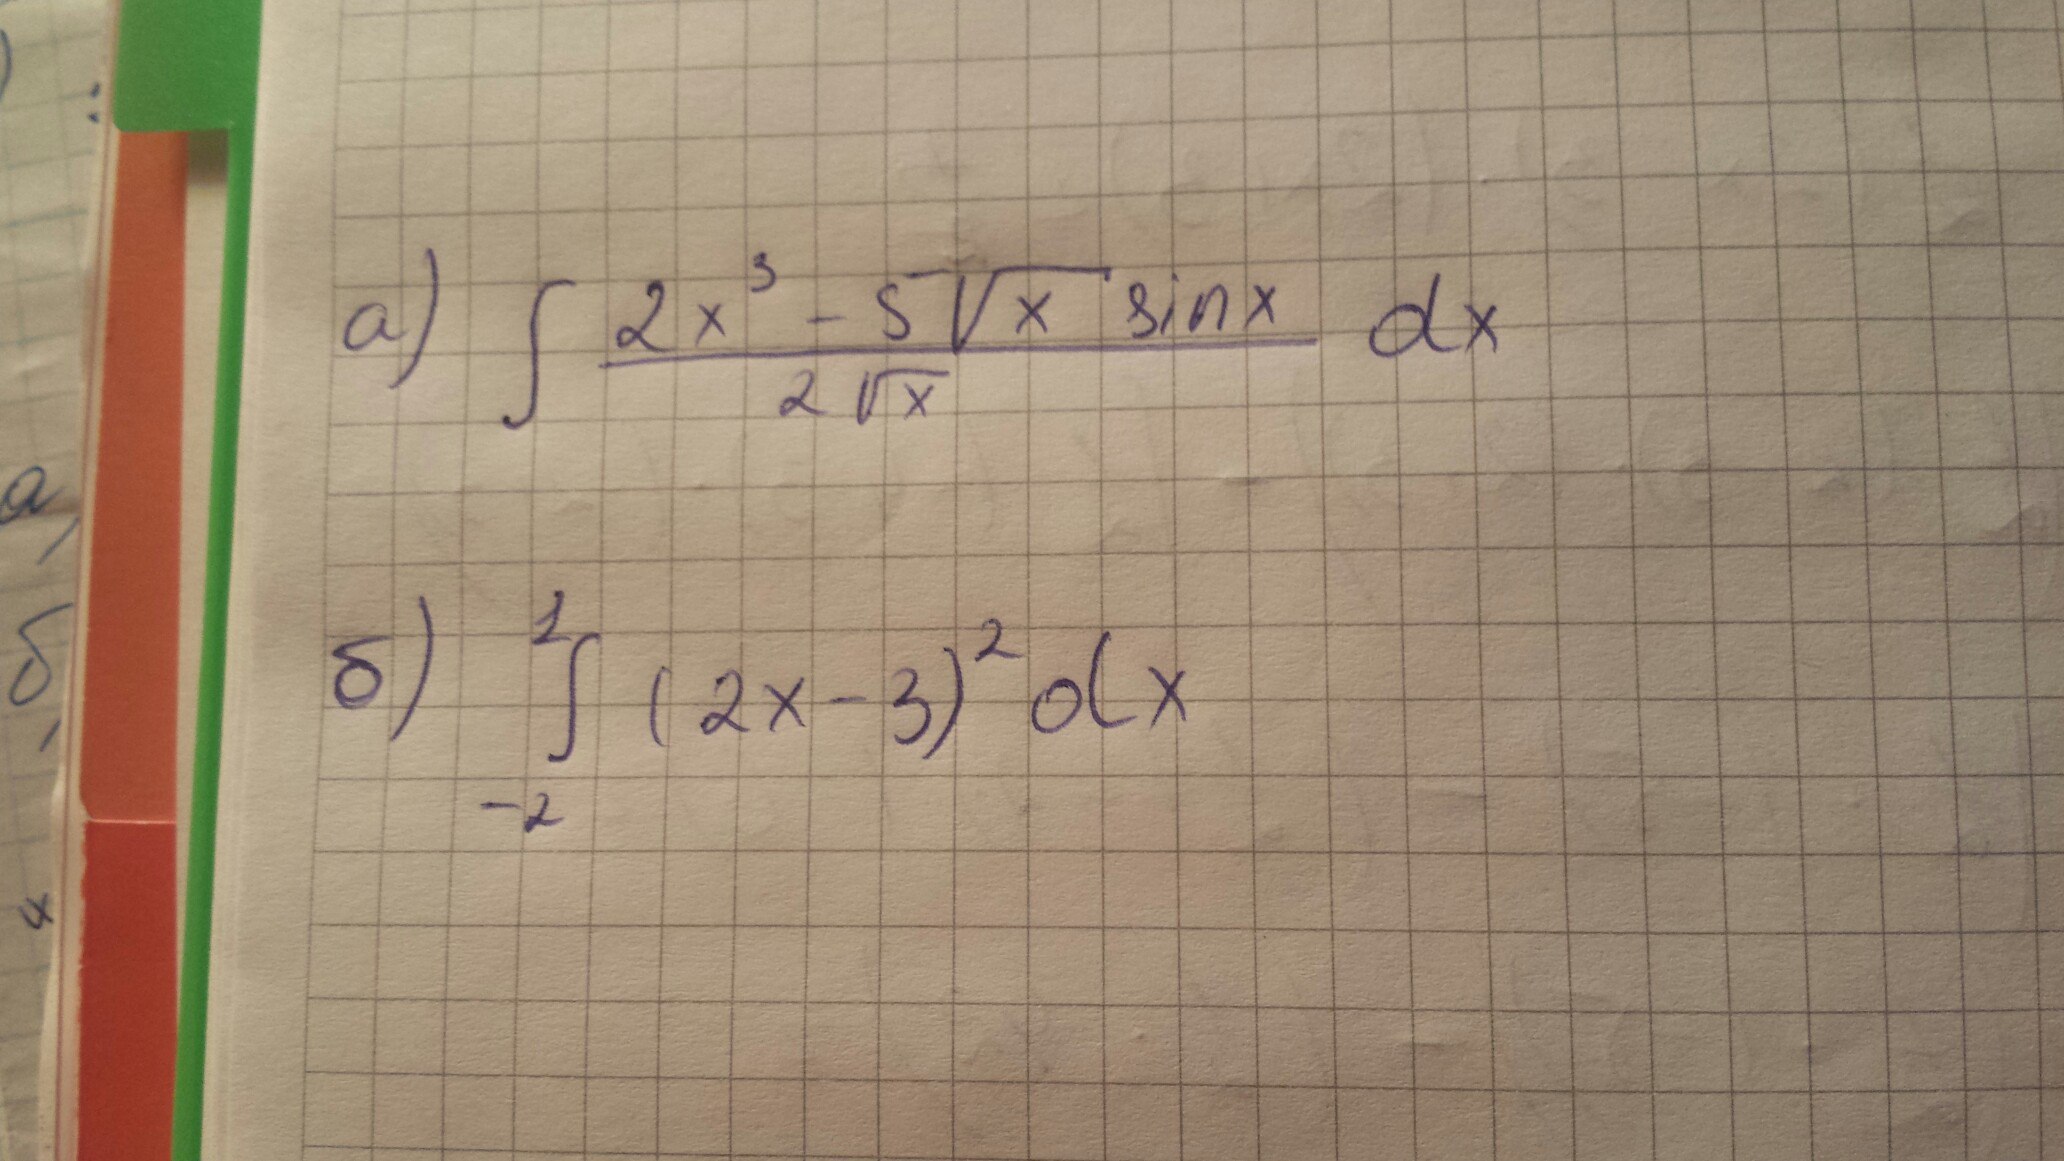 а) ∫ (2x³ - 5√x sinx)/(2√x) dx
б) ∫₋₂¹ (2x-3)² dx
а,
б,